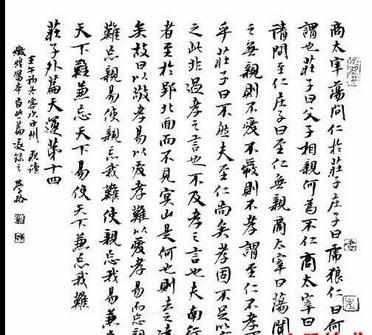 商太宰蕩問仁於莊子莊子曰虎狼仁曰何
謂也莊子曰父子相親何為不仁商太宰曰
請問至仁莊子曰至仁無親商太宰曰蕩聞
之無親則不愛不愛則不孝謂至仁不孝
乎莊子曰不然夫至仁尚矣孝固不足以
之此非過孝之言也不及孝之言也夫南行
者至於郢北面而不見冥山是何也則去
矣故曰以敬孝易以愛孝難以愛孝易而忘親
難忘親易使親忘我難使親忘我易兼
天下難兼忘天下易使天下兼忘我難
莊子外篇天運第十四